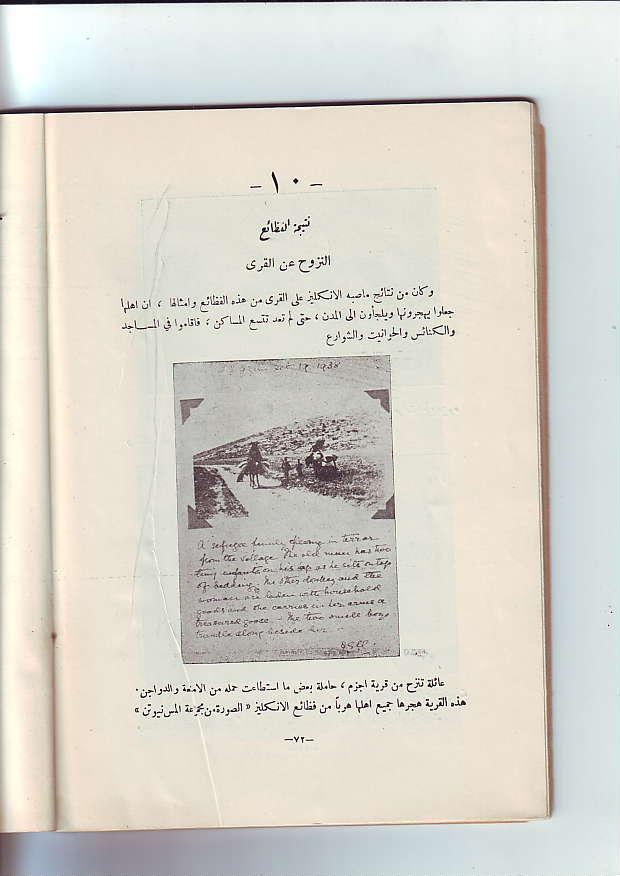 -١٠-
نتيجة الفظائع
النزوح عن القرى
وكان من نتائج ماصبه الانكليز على القرى من هذه الفظائع وامثالها ، ان اهلها
جعلوا يهجرونها ويلجأون الى المدن ، حتى لم تعد تتسع المساكن ، فاقاموا في المساجد
والكنائس والحوانيت والشوارع
1938
A refugee family fleeing in terror
from the village. The old man has two
tiny infants on his lap as he sits on top
of bedding. The other donkey and the
woman are laden with household
goods and she carries in her arms a
treasured goose - The two small boys
trundle along beside her -
عائلة تنزح من قرية اجزم ، حاملة بعض ما استطاعت حمله من الامتعة والدواجن .
هذه القرية هجرها جميع اهلها هرباً من فظائع الانكليز « الصورة من مجموعة المس نيوتن »
-٧٢-